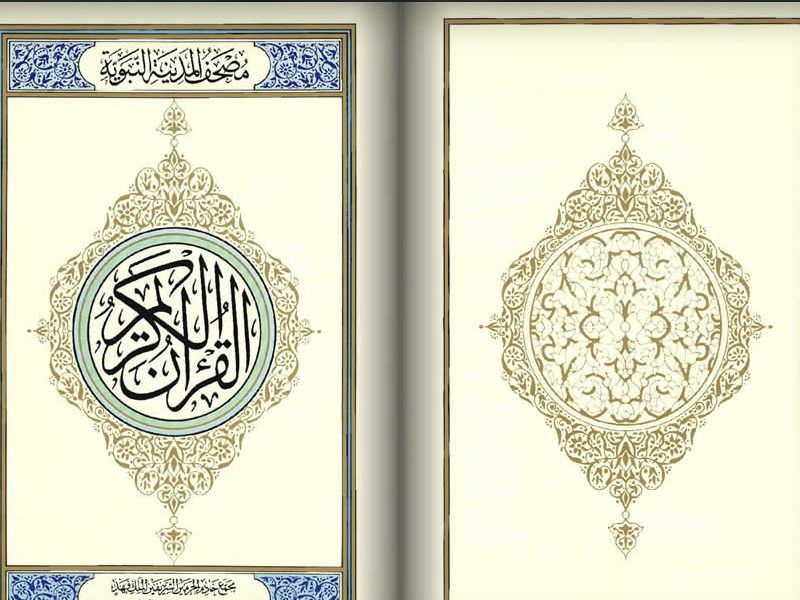 مصحف المدينة النبوية
القرآن الكريم
مجمع خادم الحرمين الشريفين الملك فهد